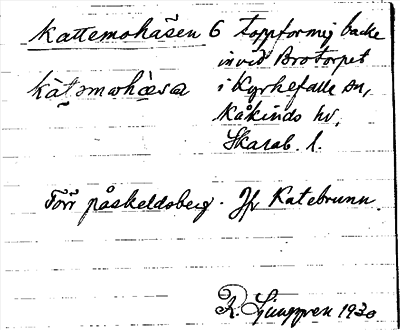 Kattemohåsen 6 toppformig backe
invid Brotorpet
kàtəmohɷ̀sa i Kyrkefalla sn,
Kåkinds hd,
Skarab. l.
Förr påskeldsberg. Jfr Katebrunn.
R. Ljunggren 1930